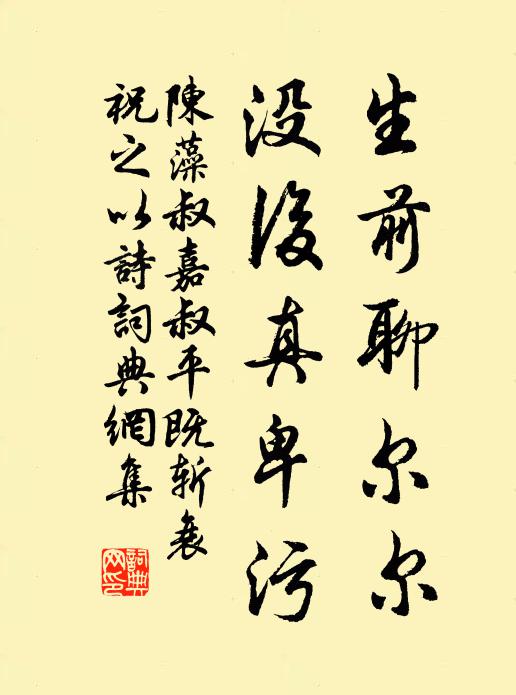 生前聊尔尔
没後真卑污
陳藻叔嘉叔平既斩衰
祝之以詩詞典網集
詞典网印